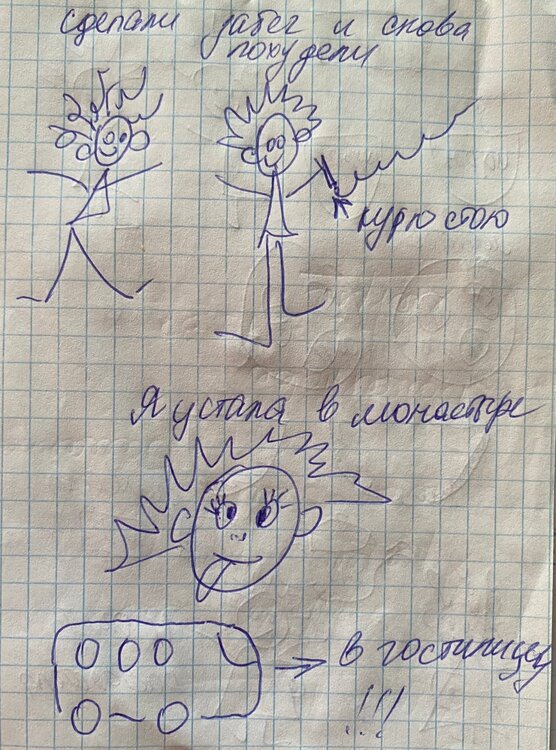 сделали забег и снова
похудели
курю стою
Я устала в монастыре
в гостиницу
!!!